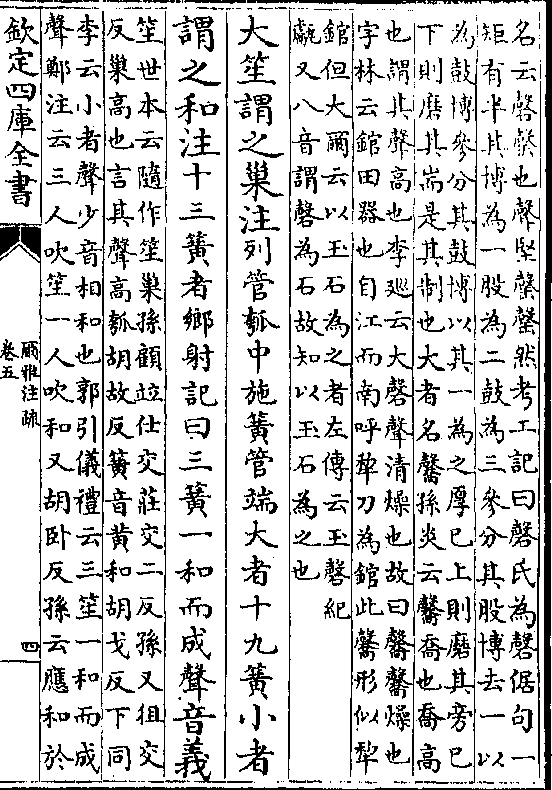 名云磬罄也聲堅罄罄然考工記曰磬氏為磬倨句一
矩有半其博為一股為二鼓為三參分其股博去一以
為鼓博參分其鼓博以其一為之厚已上則磨其旁已
下則磨其耑是其制也大者名馨孫炎云馨喬也喬高
也謂其聲高也李廵云大磬聲清燥也故曰馨馨燥也
字林云錧田器也自江而南呼犂刀為錧此馨形似犂
錧但大爾云以玉石為之者左傳云玉磬紀
甗又八音謂磬為石故知以玉石為之也
大笙謂之巢注列管瓠中施簧管端大者十九簧小者
謂之和注十三簧者鄉射記曰三簧一和而成聲音義
笙世本云隨作笙巢孫顧竝仕交莊交二反孫又徂交
反巢高也言其聲高瓠胡故反簧音黄和胡戈反下同
李云小者聲少音相和也郭引儀禮云三笙一和而成
聲鄭注云三人吹笙一人吹和又胡卧反孫云應和於
欽定四庫全書
爾雅注疏
卷五
四